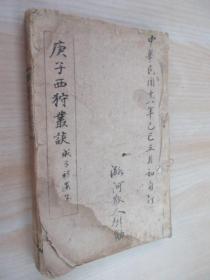 中華民國十八年己巳五月初自訂
河散人
庚子西狩叢談